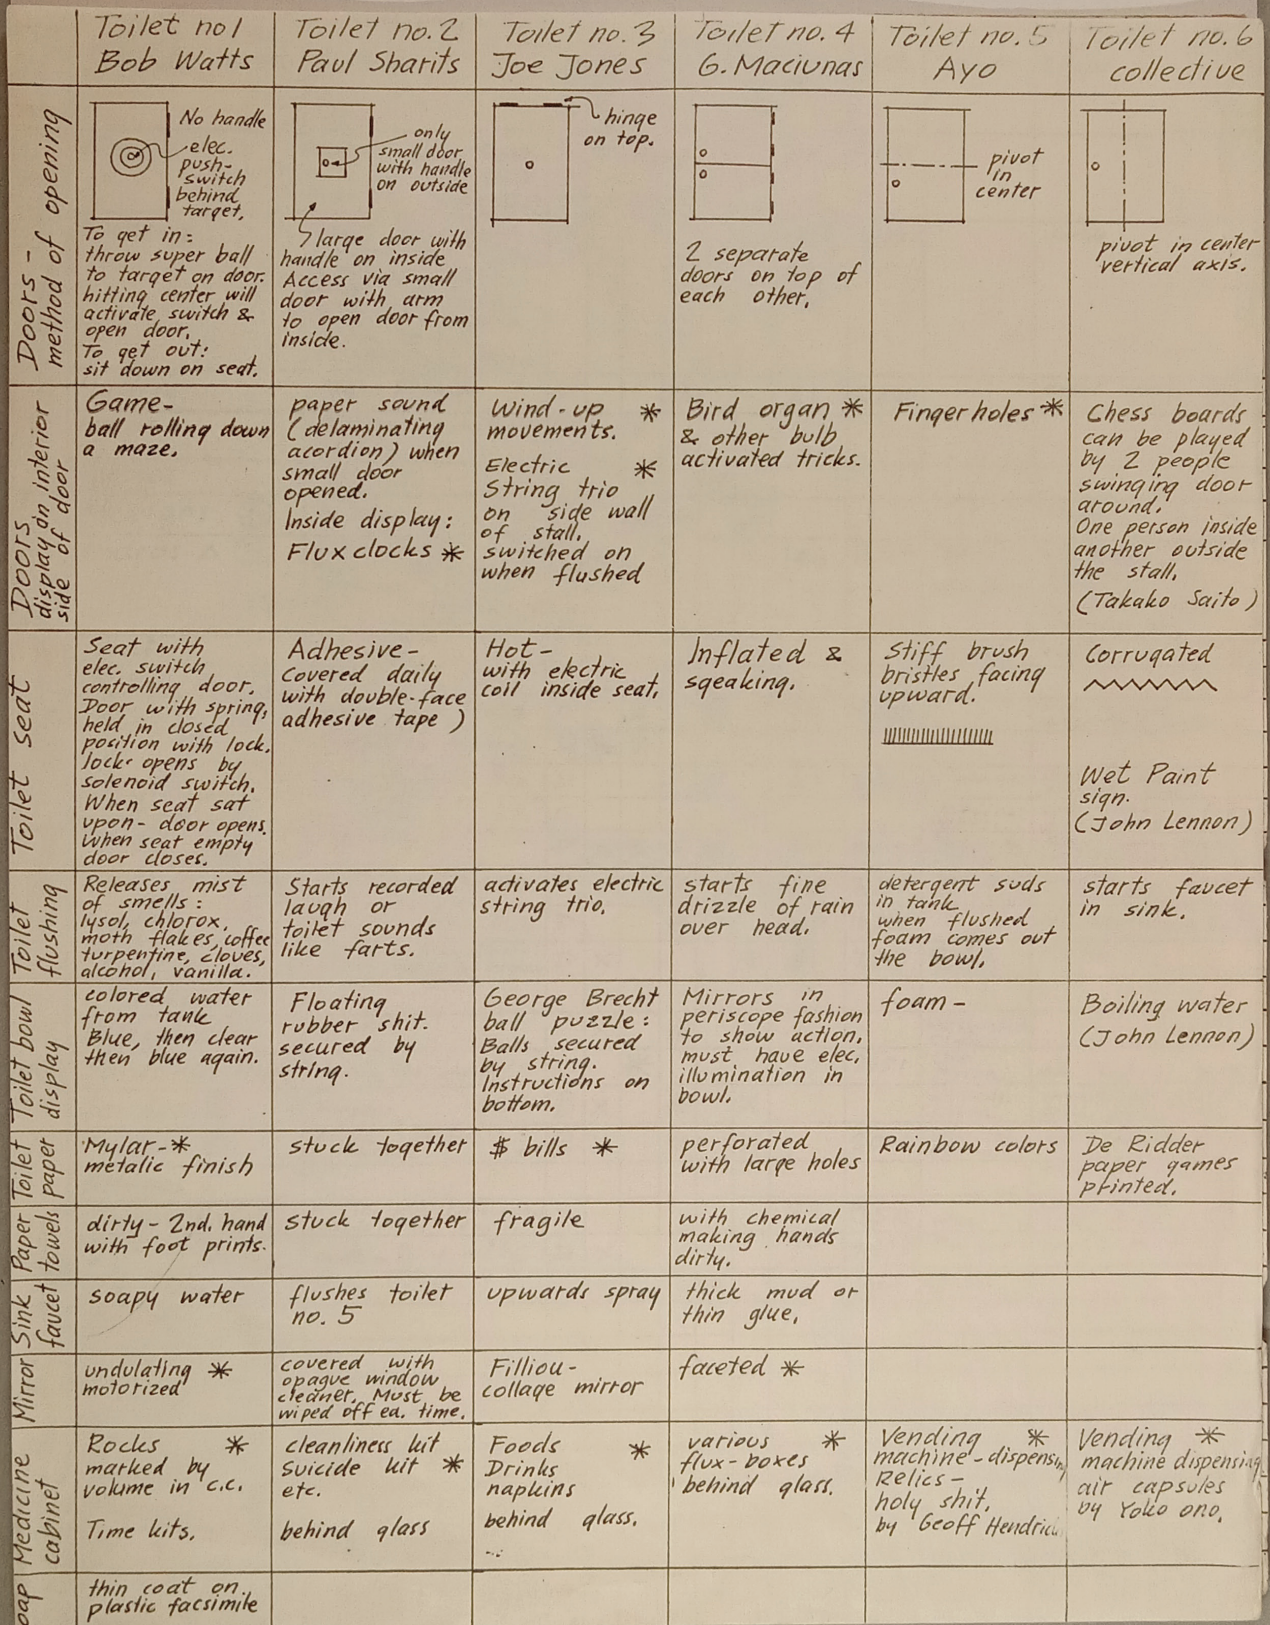 Toilet no1
Bob Watts
Toilet no. 2
Paul Sharits
Toilet no. 3
Joe Jones
Toilet no. 4
G. Maciunas
Toilet no. 5
Ayo
Toilet no. 6
collective
Doors -
method of opening
No handle
elec.
push-
switch
behind
target.
To get in:
throw super ball
to target on door.
hitting center will
activate switch &
open door.
To get out:
sit down on seat.
only
small door
with handle
on outside
large door with
handle on inside
Access via small
door with arm
to open door from
inside.
hinge
on top.
2 separate
doors on top of
each other.
pivot
in
center
pivot in center
vertical axis.
Doors
display on interior
side of door
Game-
ball rolling down
a maze.
paper sound
(delaminating
acordion) when
small door
opened.
Inside display:
Flux clocks *
Wind-up *
movements.
Electric *
String trio
on side wall
of stall.
switched on
when flushed
Bird organ *
& other bulb
activated tricks.
Finger holes *
Chess boards
can be played
by 2 people
swinging door
around.
One person inside
another outside
the stall.
(Takako Saito)
Toilet seat
Seat with
elec. switch
controlling door.
Door with spring,
held in closed
position with lock.
lock opens by
solenoid switch.
When seat sat
upon - door opens.
When seat empty
door closes.
Adhesive -
covered daily
with double-face
adhesive tape)
Hot -
with electric
coil inside seat.
Inflated &
sqeaking.
Stiff brush
bristles facing
upward.
Corrugated
Wet Paint
sign.
(John Lennon)
Toilet
flushing
Releases mist
of smells:
lysol, chlorox,
moth flakes, coffee
turpentine, cloves,
alcohol, vanilla.
Starts recorded
laugh or
toilet sounds
like farts.
activates electric
string trio.
starts fine
drizzle of rain
over head.
detergent suds
in tank
when flushed
foam comes out
the bowl.
starts faucet
in sink.
Toilet bowl
display
colored water
from tank
Blue, then clear
then blue again.
Floating
rubber shit.
secured by
string.
George Brecht
ball puzzle:
Balls secured
by string.
Instructions on
bottom.
Mirrors in
periscope fashion
to show action.
must have elec.
illumination in
bowl.
foam -
Boiling water
(John Lennon)
Toilet
paper
Mylar - *
metalic finish
stuck together
$ bills *
perforated
with large holes
Rainbow colors
De Ridder
paper games
printed.
Paper
towels
dirty - 2nd. hand
with foot prints.
stuck together
fragile
with chemical
making hands
dirty.
Sink
faucet
soapy water
flushes toilet
no. 5
upwards spray
thick mud or
thin glue.
Mirror
undulating *
motorized
covered with
opaque window
cleaner. Must be
wiped off ea. time.
Filliou-
collage mirror
faceted *
Medicine
cabinet
Rocks *
marked by
volume in c.c.
Time kits.
cleanliness kit
suicide kit *
etc.
behind glass
Foods *
Drinks
napkins
behind glass.
various *
flux-boxes
behind glass.
Vending *
machine - dispensin
Relics -
holy shit.
by Geoff Hendric
Vending *
machine dispensing
air capsules
by Yoko ono.
oap
thin coat on
plastic facsimile